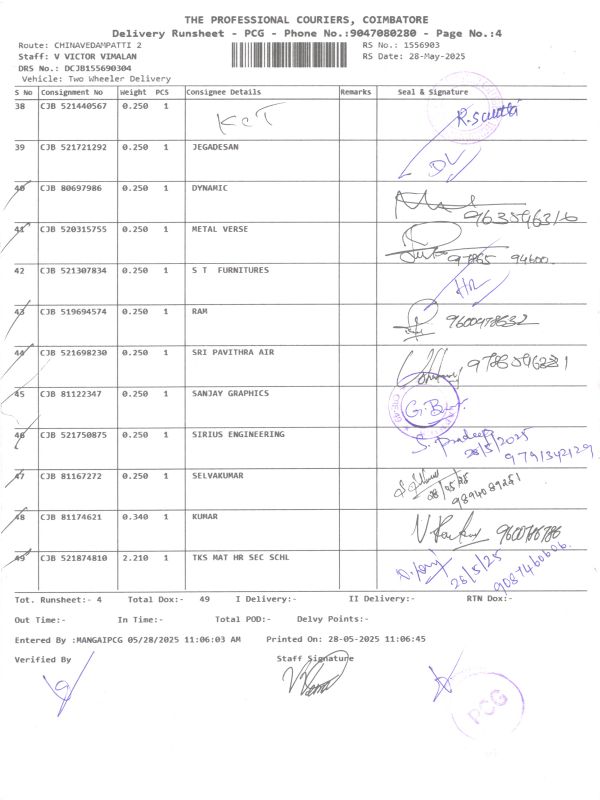 THE PROFESSIONAL COURIERS, COIMBATORE
Delivery Runsheet - PCG - Phone No.:9047080280 - Page No.:4
Route: CHINAVEDAMPATTI 2 RS No.: 1556903
Staff: V VICTOR VIMALAN RS Date: 28-May-2025
DRS No.: DCJB155690304
Vehicle: Two Wheeler Delivery
S No Consignment No Weight PCS Consignee Details Remarks Seal & Signature
38 CJB 521440567 0.250 1 KCT R.Savitha
39 CJB 521721292 0.250 1 JEGADESAN DL
40 CJB 80697986 0.250 1 DYNAMIC
41 CJB 520315755 0.250 1 METAL VERSE 97865 94600
42 CJB 521307834 0.250 1 S T FURNITURES HR
43 CJB 519694574 0.250 1 RAM
44 CJB 521698230 0.250 1 SRI PAVITHRA AIR
45 CJB 81122347 0.250 1 SANJAY GRAPHICS
46 CJB 521750875 0.250 1 SIRIUS ENGINEERING S. Pradeep 28/5/2025 9791342129
47 CJB 81167272 0.250 1 SELVAKUMAR 28/05/25
48 CJB 81174621 0.340 1 KUMAR
49 CJB 521874810 2.210 1 TKS MAT HR SEC SCHL 28/5/25 9087460606
Tot. Runsheet:- 4 Total Dox:- 49 I Delivery:- II Delivery:- RTN Dox:-
Out Time:- In Time:- Total POD:- Delvy Points:-
Entered By :MANGAIPCG 05/28/2025 11:06:03 AM Printed On: 28-05-2025 11:06:45
Verified By Staff Signature
PCG